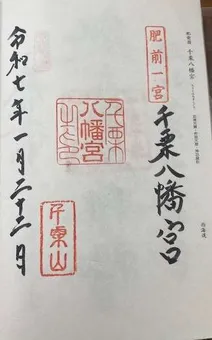 肥前一宮
千栗八幡宮
千栗
八幡宮
之印
千栗山
令和七年一月二十二日